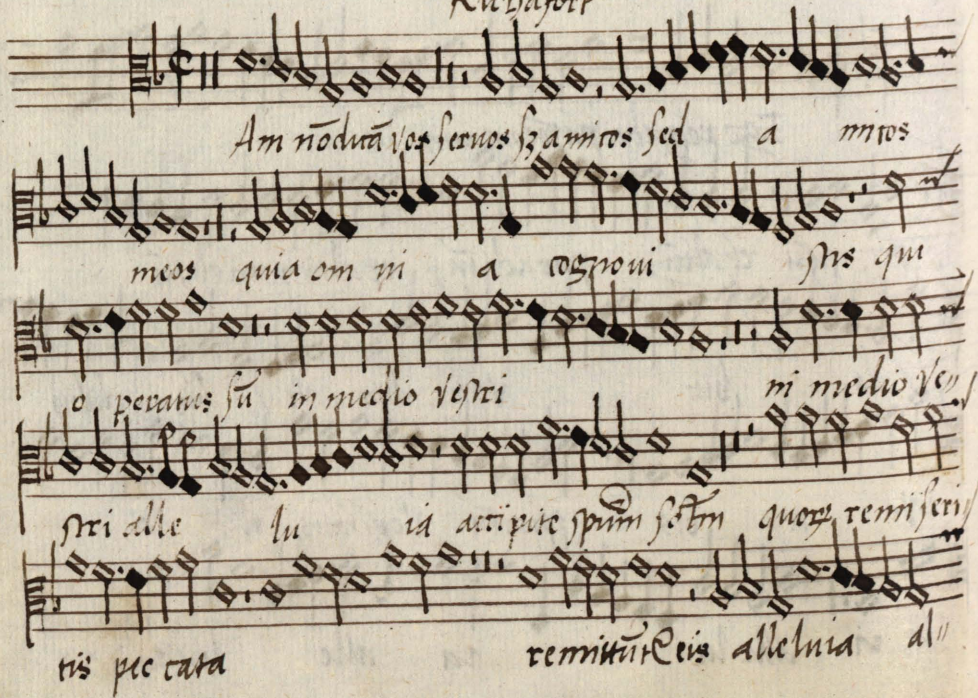 Richafort
Am nō dicā vos servos sz amicos sed a micos
meos quia om ni a cognovi stis qui
o peratus sū in medio vestri in medio ve
stri alle lu ia accipite spūm sctm̄ quorꝝ remiseri
tis pec cata remittūt eis alleluia al